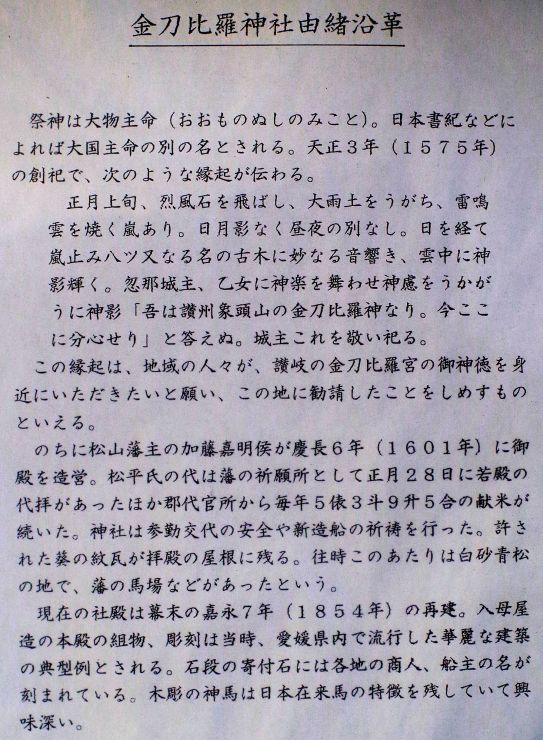 金刀比羅神社由緒沿革
祭神は大物主命（おおものぬしのみこと）。日本書紀などに
よれば大国主命の別の名とされる。天正３年（１５７５年）
の創祀で、次のような縁起が伝わる。
正月上旬、烈風石を飛ばし、大雨土をうがち、雷鳴
雲を焼く嵐あり。日月影なく昼夜の別なし。日を経て
嵐止み八ツ又なる名の古木に妙なる音響き、雲中に神
影輝く。忽那城主、乙女に神楽を舞わせ神慮をうかが
うに神影「吾は讃州象頭山の金刀比羅神なり。今ここ
に分心せり」と答えぬ。城主これを敬い祀る。
この縁起は、地域の人々が、讃岐の金刀比羅宮の御神徳を身
近にいただきたいと願い、この地に勧請したことをしめすもの
といえる。
のちに松山藩主の加藤嘉明侯が慶長６年（１６０１年）に御
殿を造営。松平氏の代は藩の祈願所として正月２８日に若殿の
代拝があったほか郡代官所から毎年５俵３斗９升５合の献米が
続いた。神社は参勤交代の安全や新造船の祈祷を行った。許さ
れた葵の紋瓦が拝殿の屋根に残る。往時このあたりは白砂青松
の地で、藩の馬場などがあったという。
現在の社殿は幕末の嘉永７年（１８５４年）の再建。入母屋
造の本殿の組物、彫刻は当時、愛媛県内で流行した華麗な建築
の典型例とされる。石段の寄付石には各地の商人、船主の名が
刻まれている。木彫の神馬は日本在来馬の特徴を残していて興
味深い。